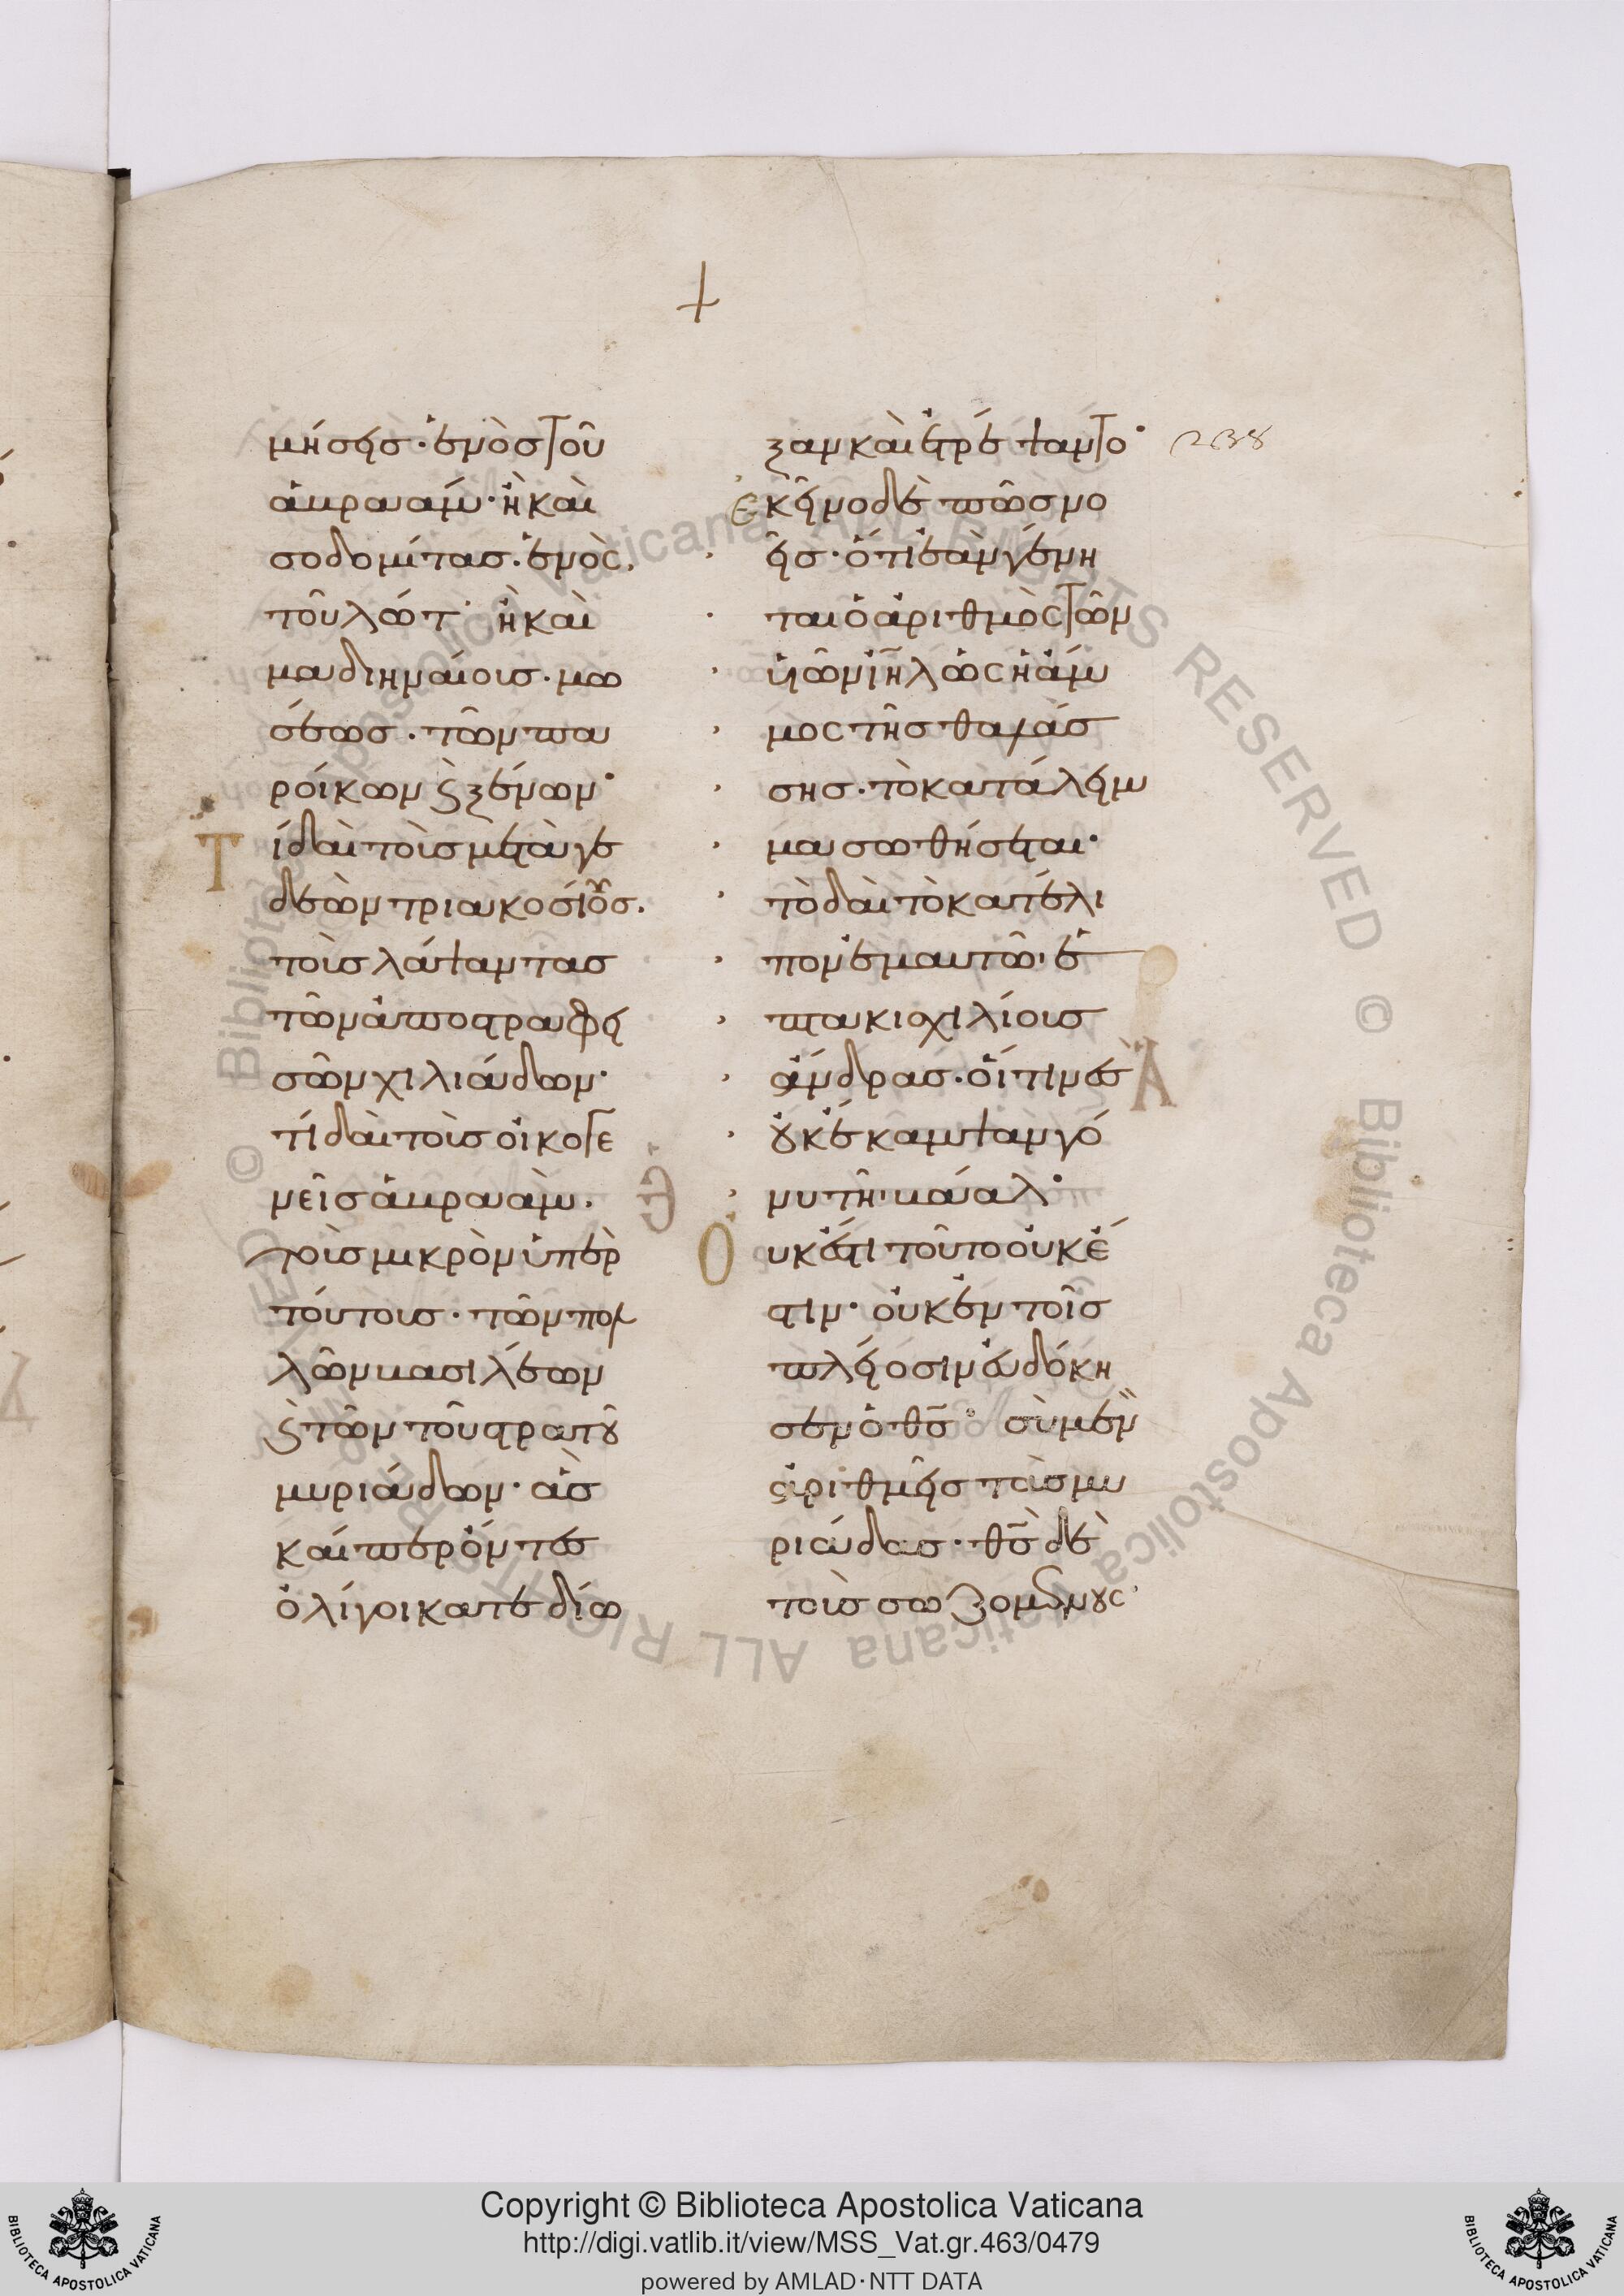 +
μήσεισ· ἑνὸσ τοῦ
ἀβραάμ· ἢ καὶ
σοδομίτασ· ἑνὸς
τοῦ λώτ· ἢ καὶ
μαδιηναίοισ· μω
σέωσ· τῶν πα
ροίκων ϗ ξένων·
Τί δαὶ τοῖσ μετὰ γε
δεὼν τριακοσίοισ.
τοῖσ λάψαντασ
τῶν ἀποστραφει
σῶν χιλιάδων·
τί δαὶ τοῖσ οἰκογε
νεῖσ ἀβραὰμ.
τοῖσ μικρὸν ὑπὲρ
τούτοισ· τῶν πολ
λῶν βασιλέων
ϗ τῶν τοῦ στρατοῦ
μυριάδων· οὓσ
καίπερ ὄντεσ
ὀλίγοι κατεδίω
ξαν καὶ ἐτρέψαντο· 238
Ἐκεῖνο δὲ πῶσ νο
εῖσ· ὅτι ἐὰν γένη
ται ὁ ἀριθμὸς τῶν
υἱῶν ιηλ ὡς ἡ ἄμ
μος τῆσ θαλάσ
σησ· τὸ κατάλειμ
μα σωθήσεται·
τὸ δαὶ τὸ κατέλι
πον ἐμαυτῶ· ἑ
πτακισχιλίουσ
ἄνδρασ· οἵτινεσ
οὐκ ἔκαμψαν γό
νυ τῆ βάαλ·
Οὐκ ἔστι τοῦτο οὐκ ἔ
στιν· οὐκ ἐν τοῖσ
πλείοσιν εὐδόκη
σεν ὁ θσ· σὺ μὲν
ἀριθμεῖσ τὰσ μυ
ριάδασ· θσ δὲ
τοὺσ σωζομένους·
Copyright © Biblioteca Apostolica Vaticana
http://digi.vatlib.it/view/MSS_Vat.gr.463/0479
powered by AMLAD·NTT DATA
BIBLIOTECA APOSTOLICA VATICANA
BIBLIOTECA APOSTOLICA VATICANA
© Biblioteca Apostolica Vaticana ALL RIGHTS RESERVED © Biblioteca Apostolica Vaticana ALL RIGHTS RESERVED